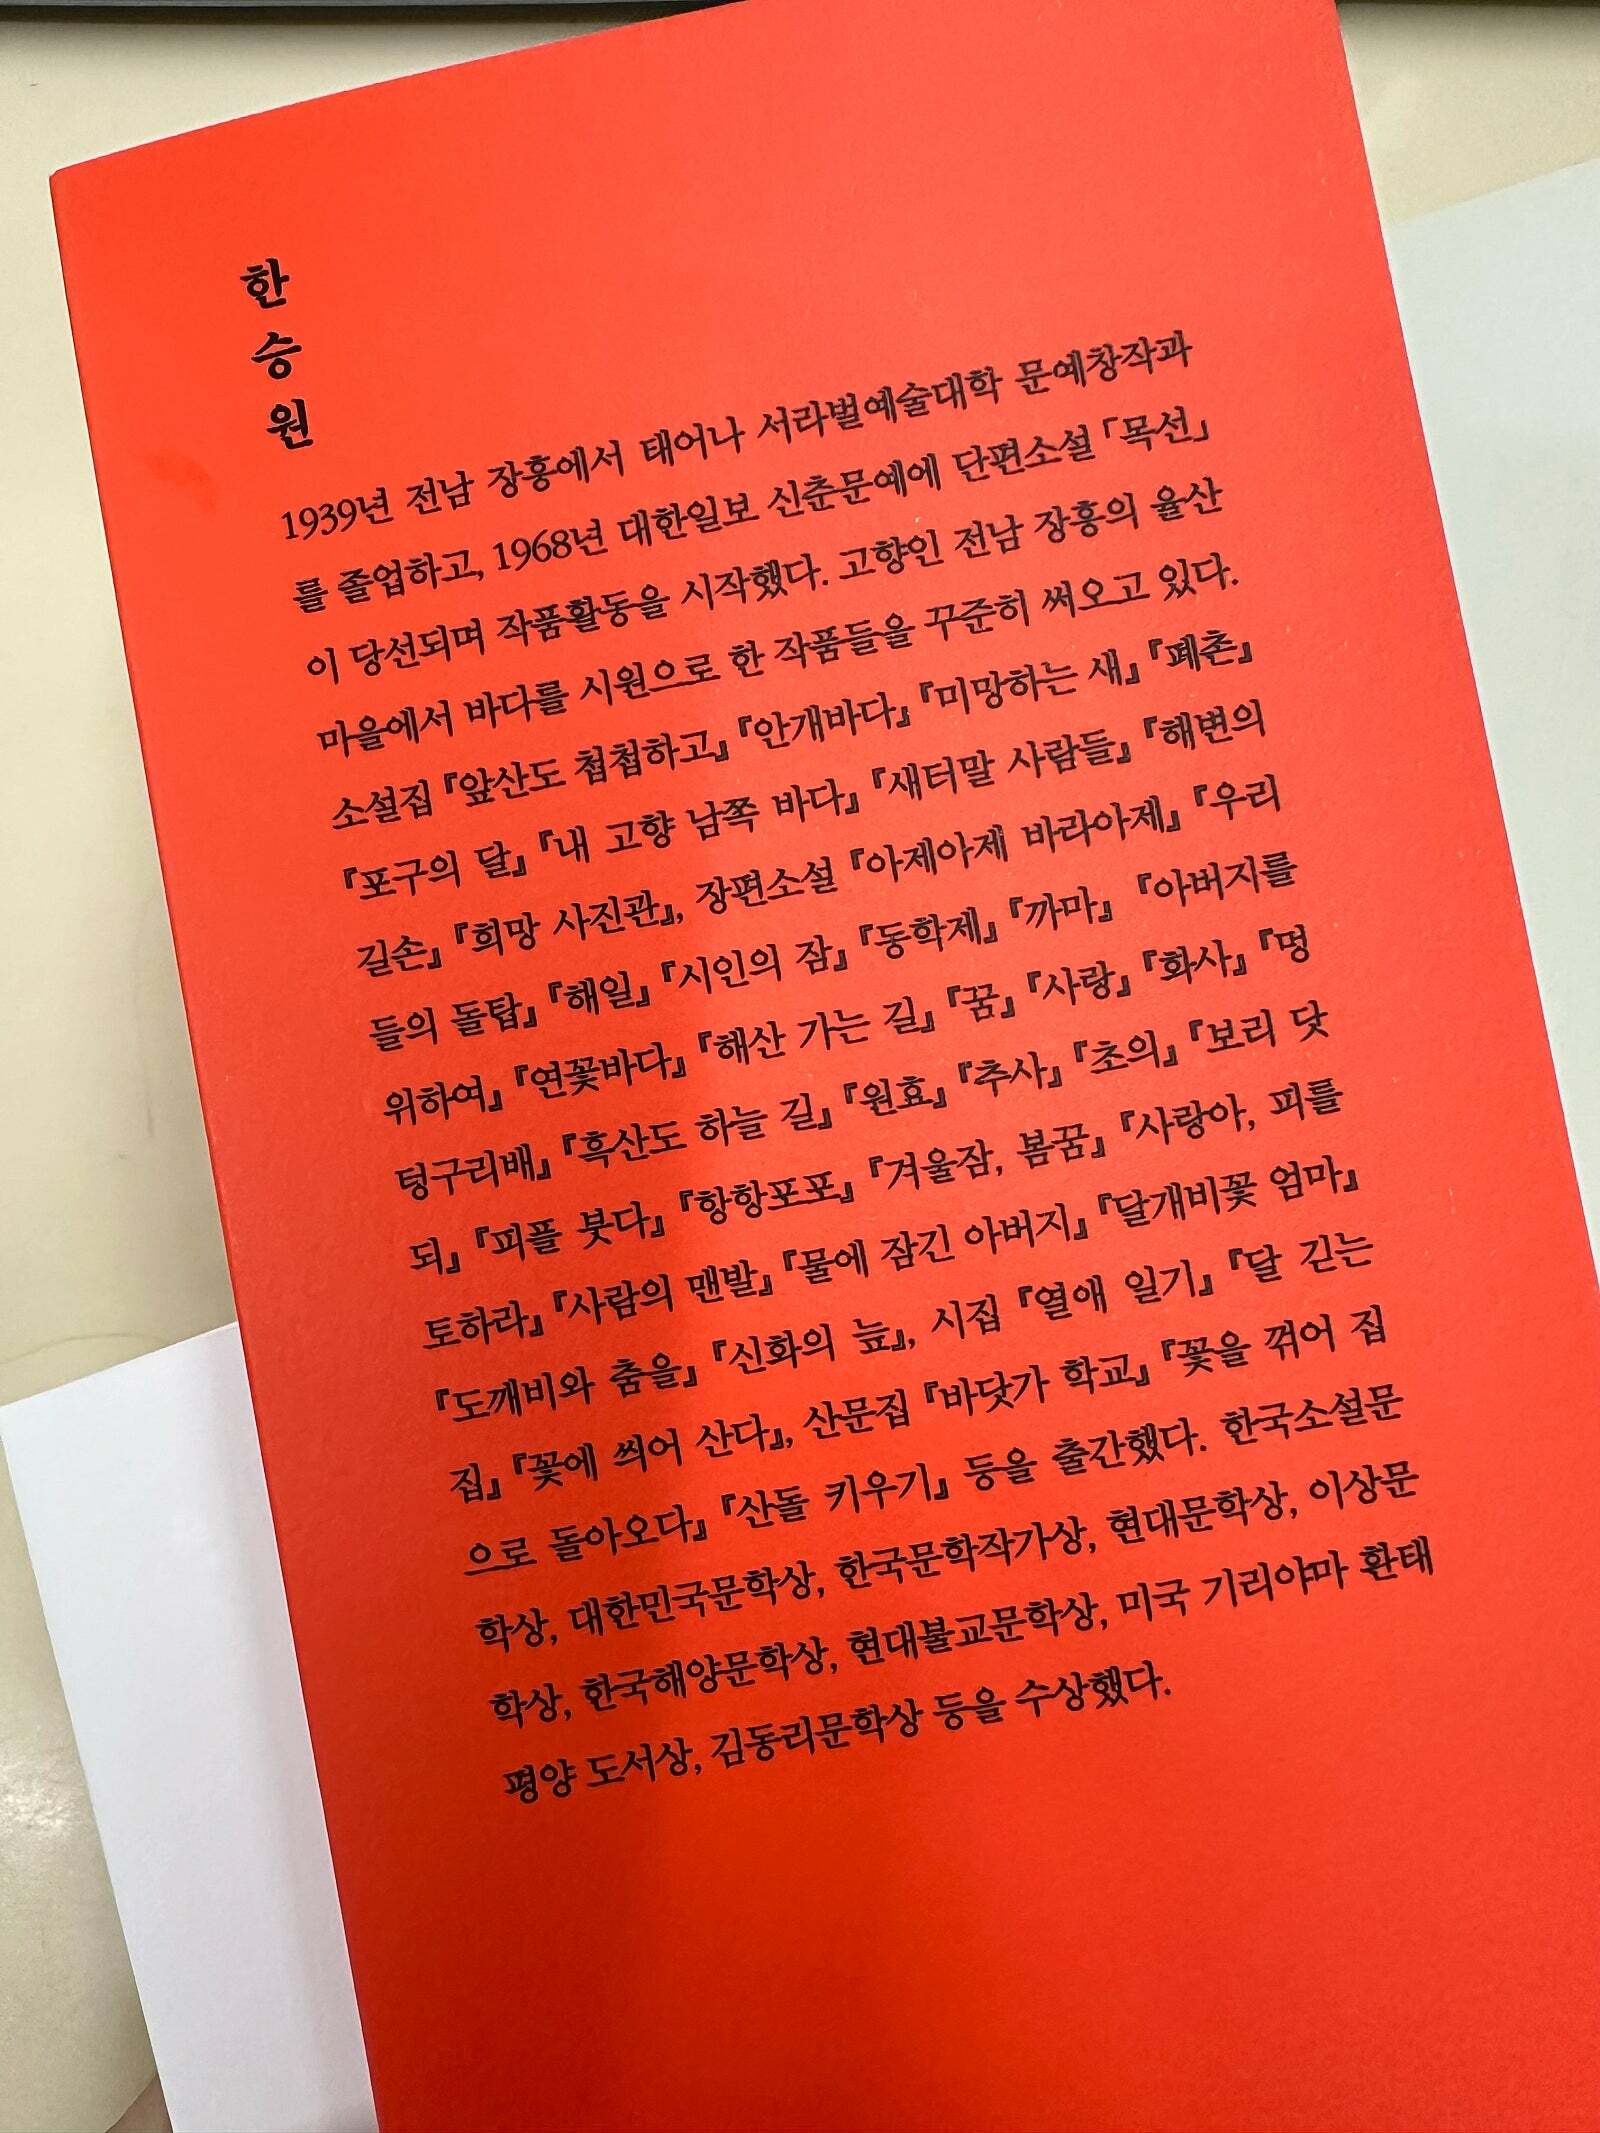 한승원
1939년 전남 장흥에서 태어나 서라벌예술대학 문예창작과
를 졸업하고, 1968년 대한일보 신춘문예에 단편소설 「목선」
이 당선되며 작품활동을 시작했다. 고향인 전남 장흥의 율산
마을에서 바다를 시원으로 한 작품들을 꾸준히 써오고 있다.
소설집 『앞산도 첩첩하고』 『안개바다』 『미망하는 새』 『폐촌』
『포구의 달』 『내 고향 남쪽 바다』 『새터말 사람들』 『해변의
길손』 『희망 사진관』, 장편소설 『아제아제 바라아제』 『우리
들의 돌탑』 『해일』 『시인의 잠』 『동학제』 『까마』 『아버지를
위하여』 『연꽃바다』 『해산 가는 길』 『꿈』 『사랑』 『화사』 『멍
텅구리배』 『흑산도 하늘 길』 『원효』 『추사』 『초의』 『보리 닷
되』 『피플 붓다』 『항항포포』 『겨울잠, 봄꿈』 『사랑아, 피를
토하라』 『사람의 맨발』 『물에 잠긴 아버지』 『달개비꽃 엄마』
『도깨비와 춤을』 『신화의 늪』, 시집 『열애 일기』 『달 긷는
집』 『꽃에 씌어 산다』, 산문집 『바닷가 학교』 『꽃을 꺾어 집
으로 돌아오다』 『산돌 키우기』 등을 출간했다. 한국소설문
학상, 대한민국문학상, 한국문학작가상, 현대문학상, 이상문
학상, 한국해양문학상, 현대불교문학상, 미국 기리야마 환태
평양 도서상, 김동리문학상 등을 수상했다.